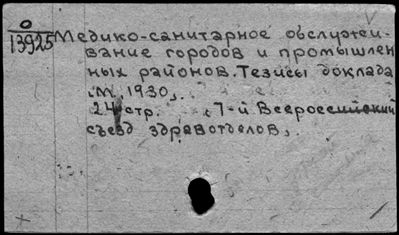 О
13925 Медико-санитарное обслужи-
вание городов и промышлен
ных районов. Тезисы доклада
М, 1930,
24 стр. 7-й Всероссийский
съезд здравотделов,